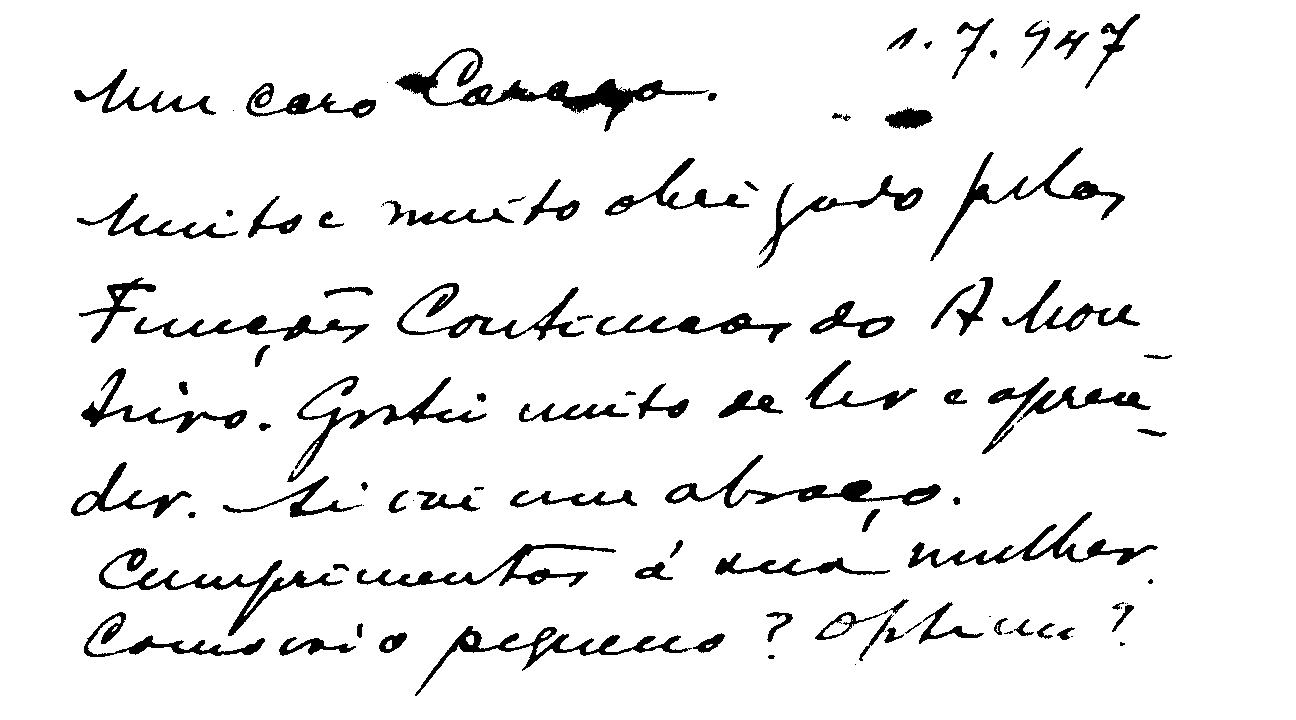 1.7.947
Meu caro Caraça.
Muito e muito obrigado pelas
Funções Continuas do A Mon-
teiro. Gostei muito de ler e apren-
der. Ai vai um abraço.
Cumprimentos á sua mulher.
Como vai o pequeno? Optimo?